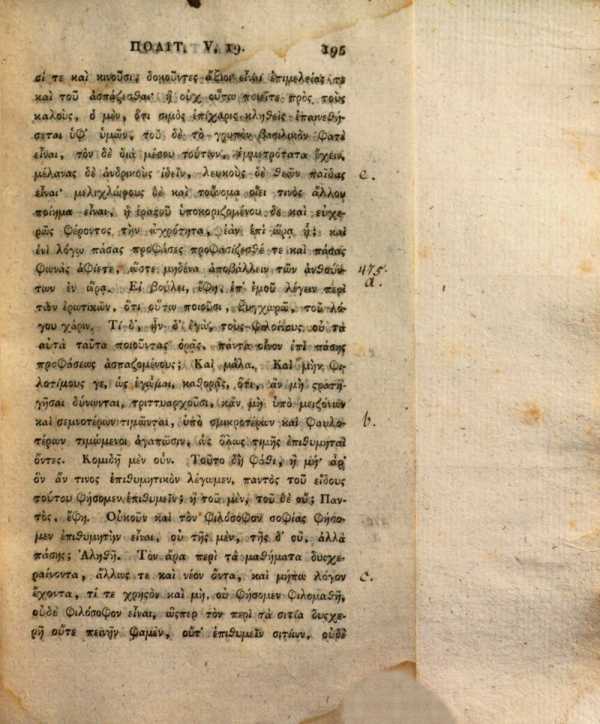 ΠΟΛΙΤ. V. 19. 195
σί τε καὶ κινοῦσι, δοκοῦντες ἄξιοι εἶναι ἐπιμελείας τε
καὶ τοῦ ἀσπάζεσθαι· ἢ οὐχ οὕτω ποιεῖτε πρὸς τοὺς
καλούς, ὁ μὲν, ὅτι σιμὸς ἐπίχαρις κληθεὶς ἐπαινεθή-
σεται ὑφ' ὑμῶν, τοῦ δὲ τὸ γρυπὸν βασιλικόν φατε
εἶναι, τὸν δὲ διὰ μέσου τούτων, ἐμμετρότατα ἔχειν,
μέλανας δὲ ἀνδρικοὺς ἰδεῖν, λευκοὺς δὲ θεῶν παῖδας e.
εἶναι· μελιχλώρους δὲ καὶ τοὔνομα οἴει τινὸς ἄλλου
ποίημα εἶναι, ἢ ἐραστοῦ ὑποκοριζομένου δὲ καὶ εὐχε-
ρῶς φέροντος τὴν ὠχρότητα, ἐὰν ἐπὶ ὥρᾳ ᾖ; καὶ
ἑνὶ λόγῳ πάσας προφάσεις προφασίζεσθέ τε καὶ πάσας
φωνὰς ἀφίετε, ὥστε μηδένα ἀποβάλλειν τῶν ἀνθούν- 475.
των ἐν ὥρᾳ. Εἰ βούλει, ἔφη, ἐπ' ἐμοῦ λέγειν περὶ a.
τῶν ἐρωτικῶν, ὅτι οὕτω ποιοῦσι, ξυγχωρῶ, τοῦ λό-
γου χάριν. Τί δ', ἦν δ' ἐγώ, τοὺς φιλοίνους οὐ τὰ
αὐτὰ ταῦτα ποιοῦντας ὁρᾷς, πάντα οἶνον ἐπὶ πάσης
προφάσεως ἀσπαζομένους; Καὶ μάλα. Καὶ μὴν φι-
λοτίμους γε, ὡς ἐγᾦμαι, καθορᾷς, ὅτι, ἂν μὴ στρατη-
γῆσαι δύνωνται, τριττυαρχοῦσι, κἂν μὴ ὑπὸ μειζόνων
καὶ σεμνοτέρων τιμῶνται, ὑπὸ σμικροτέρων καὶ φαυλο- b.
τέρων τιμώμενοι ἀγαπῶσιν, ὡς ὅλως τιμῆς ἐπιθυμηταὶ
ὄντες. Κομιδῇ μὲν οὖν. Τοῦτο δὴ φάθι, ἢ μή· ἆρ'
ὃν ἄν τινος ἐπιθυμητικὸν λέγωμεν, παντὸς τοῦ εἴδους
τούτου φήσομεν ἐπιθυμεῖν; ἢ τοῦ μὲν, τοῦ δὲ οὔ; Παν-
τός, ἔφη. Οὐκοῦν καὶ τὸν φιλόσοφον σοφίας φήσο-
μεν ἐπιθυμητὴν εἶναι, οὐ τῆς μὲν, τῆς δ' οὔ, ἀλλὰ
πάσης; Ἀληθῆ. Τὸν ἄρα περὶ τὰ μαθήματα δυσχε-
ραίνοντα, ἄλλως τε καὶ νέον ὄντα, καὶ μήπω λόγον c.
ἔχοντα, τί τε χρηστὸν καὶ μή, οὐ φήσομεν φιλομαθῆ,
οὐδὲ φιλόσοφον εἶναι, ὥσπερ τὸν περὶ τὰ σιτία δυσχε-
ρῆ οὔτε πεινῆν φαμὲν, οὔτ' ἐπιθυμεῖν σιτίων, οὐδὲ